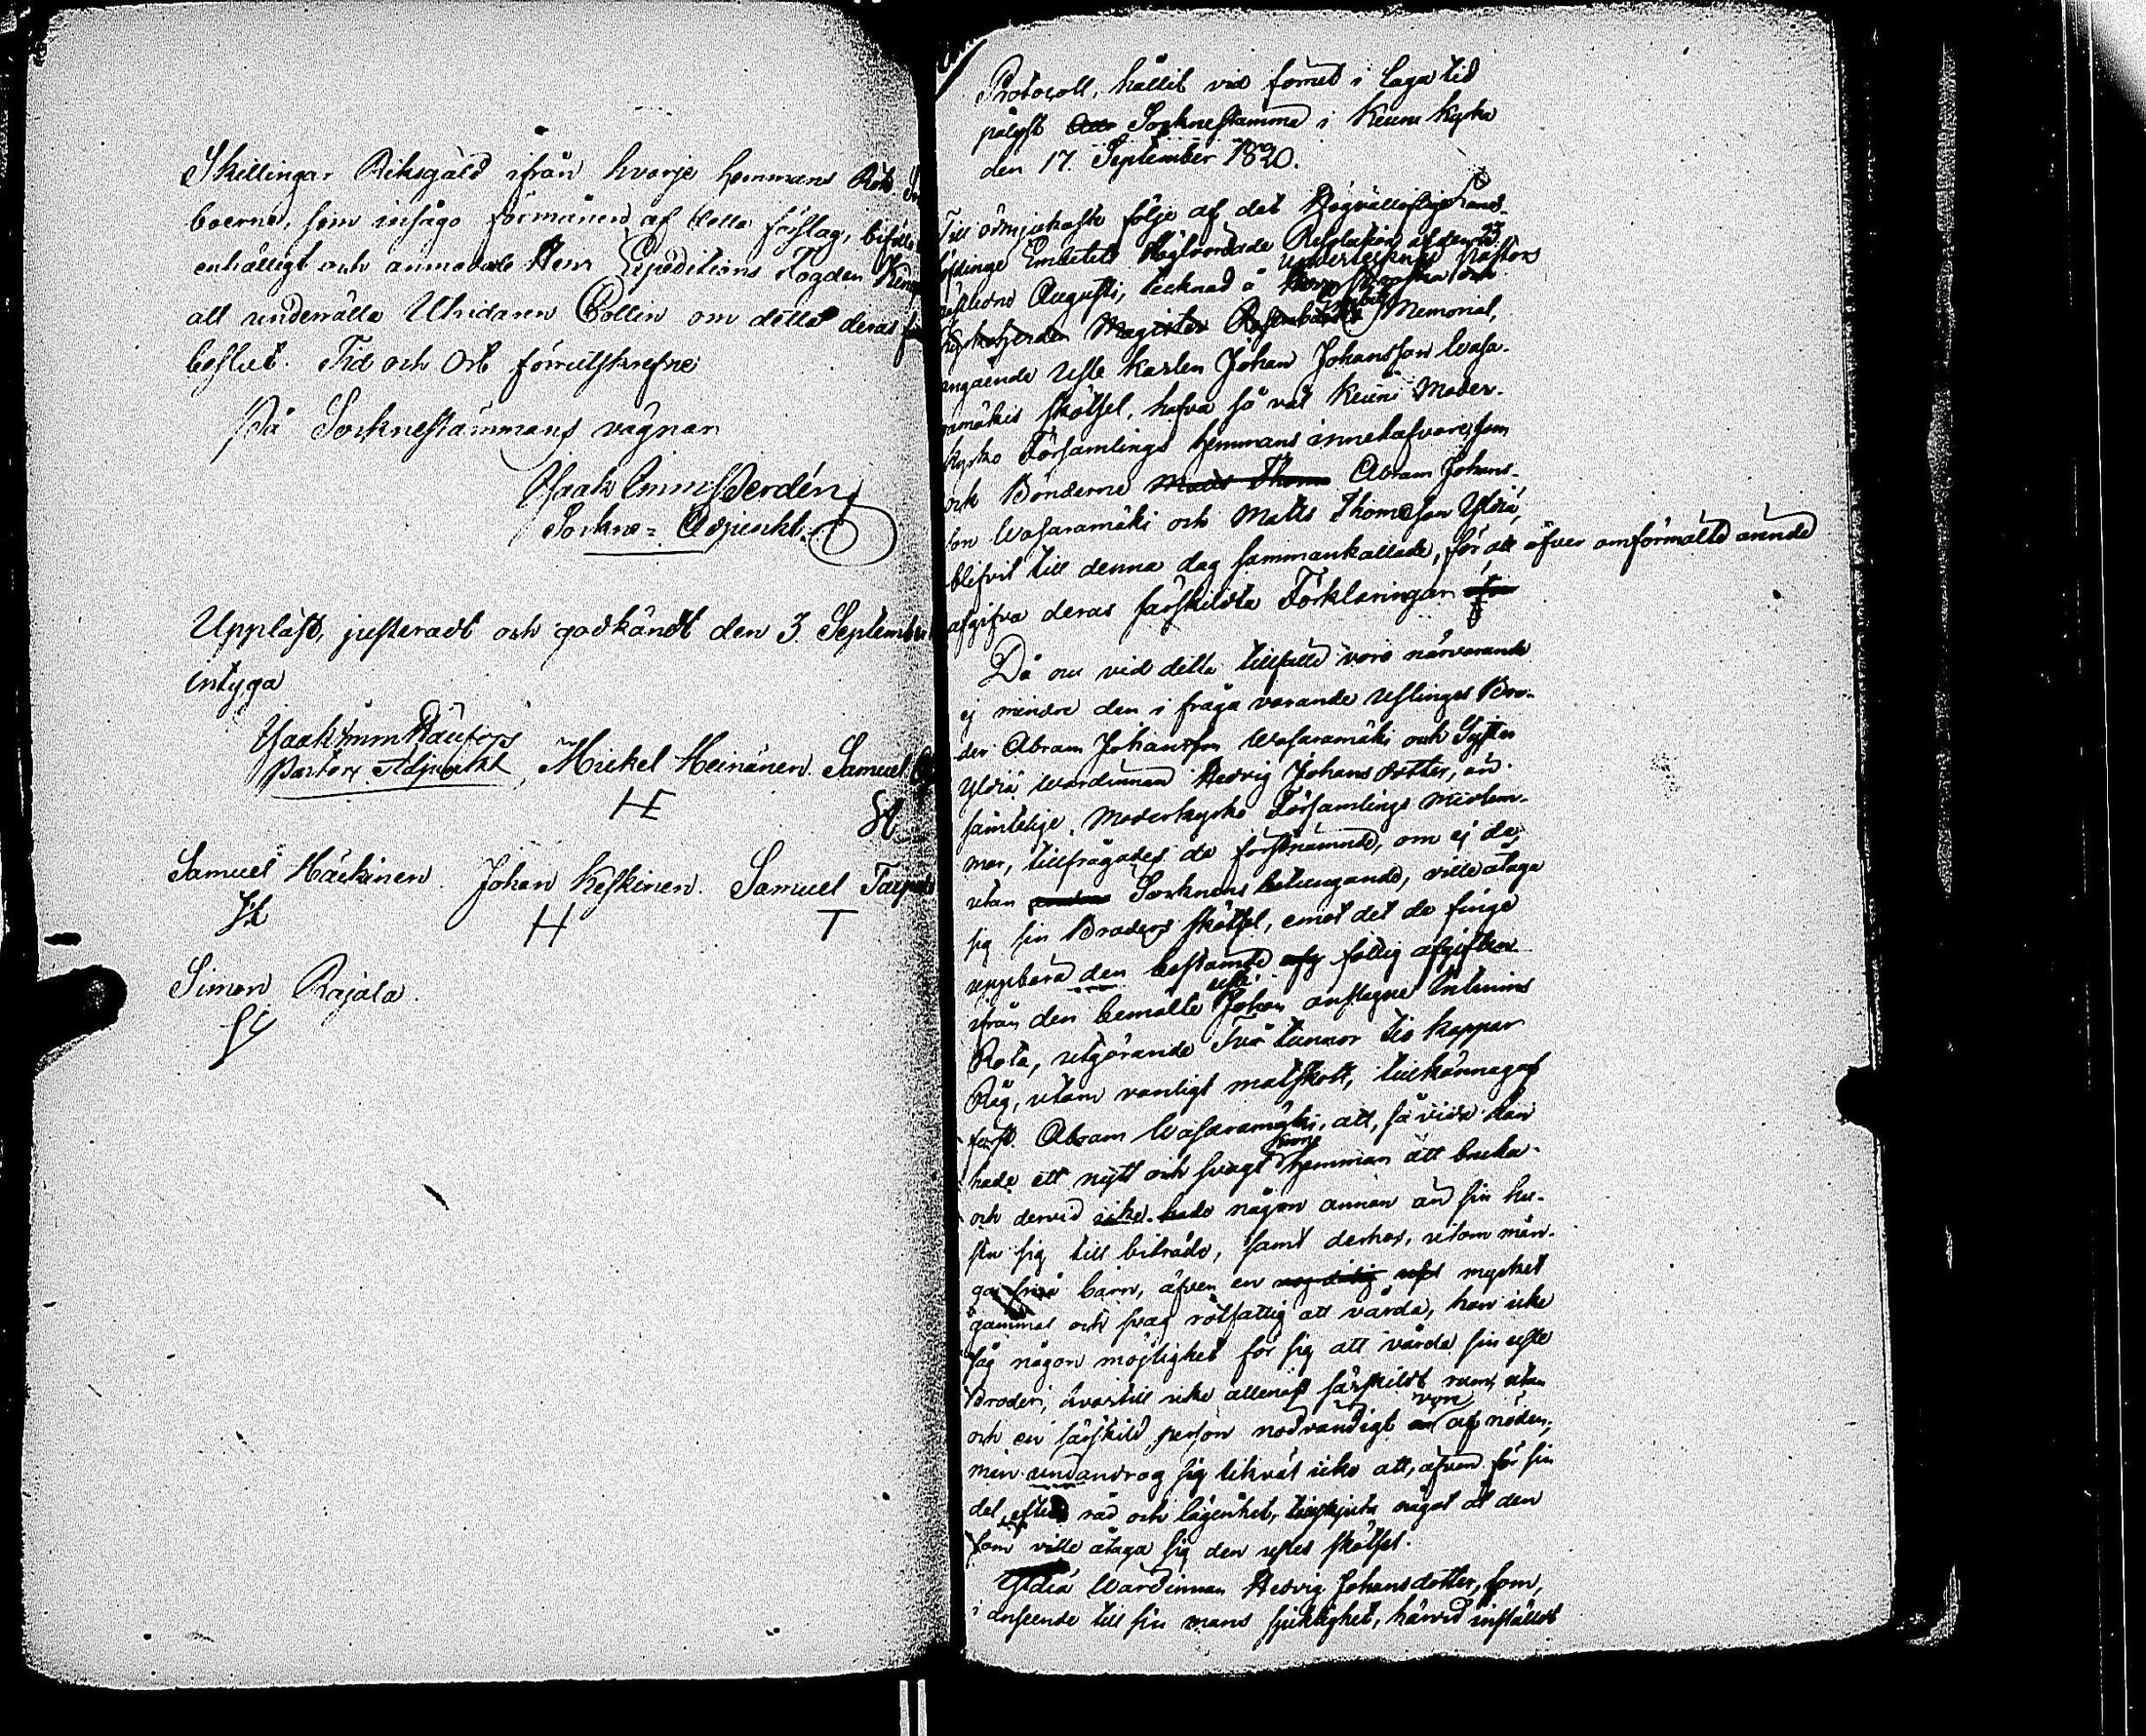 Skillingar Riksgäld ifrån hvarje hemmans Rök.
boerne, som insågo förmånen af detta förslag, biföllo
enhälligt och anmodade Herr Expeditions Fogden
att underrätta Uhrdaren Collin om detta deras
beslut. Tid och Ort förrutskrefne
På Socknestämmans vägnar
Isaak Imm
Sockne-Adjunkt.
Uppläst, justeradt och godkändt den 3. September
intyga
Isaak Imm
Pastors Adjunkt, Mickel Heinänen. Samuel
Samuel Häckinen. Johan Keskinen. Samuel
H T
Simon Rajala.
Protocoll, hållit vid förut i laga tid
pålyst Socknestämma i Keuru kyrka
den 17. September 1820.
Till ödmjukaste följe af det Högvälloflige Lands-
höfdinge Embetets Högtvördade Resolution af den 23
Augusti, tecknad å undertecknad Pastors
Magister Memorial,
angående usle karlen Johan Johansson Wasa-
ramäkis skötsel, hafva så väl Keuru Moder-
kyrko Församlings hemmans innehafvare, som
ock Bönderne Abram Johans-
son Wasaramäki och Matts Thomasson Yldiä,
blifvit till denna dag sammankallade, för att öfver omförmälte ärende
afgifva deras särskildta Förklaringar
Då nu vid detta tillfälle voro närvarande
ej mindre den i fråga varande uslinges Bro-
der Abram Johansson Wasaramäki och Syster
Yldiä Wärdinnan Hedvig Johansdotter, än
samtelige Moderkyrko Församlings medlem-
mar, tillfrågades de förstnämnde, om ej de,
utan Socknens betungande, ville åtaga
sig sin Broders skötsel, emot det de finge
uppbära den bestämde afgiften
ifrån den bemälte usle Johan anslagne Interims
Rota, utgörande Två tunnor tio kappar
Råg, utom vanligt matskott, tillkännagaf
först Abram Wasaramäki, att, så vida han
hade ett nytt och svagt hemman att bruka
och dervid icke hade någon annan än sin hu-
stru sig till biträde, samt derhos, utom mån-
ga små barn, äfven en mycket
gammal och svag rotfattig att vårda, han icke
såg någon möjlighet för sig att vårda sin usle
Broder, hvartill icke allenast särskildt rum, utan
och en särskild person nödvändigt vore af nöden,
men undandrog sig likväl icke att, äfven för sin
del, efter råd och lägenhet, tillskjuta något åt den
som ville åtaga sig den usles skötsel.
Yldiä Wärdinnan Hedvig Johansdotter, som,
i anseende till sin mans sjuklighet, härvid inställdt